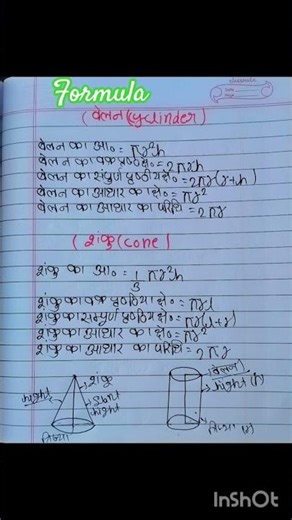 Formula
(बेलन(cyclinder)
बेलन का आ० = πr²h
बेलन का वक्र पृष्ठीय क्षे० = 2πrh
बेलन का संपूर्ण पृष्ठीय क्षे० = 2πr(r+h)
बेलन का आधार का क्षे० = πr²
बेलन का आधार का परिधि = 2πr
(शंकु(cone)
शंकु का आ० = 1/3 πr²h
शंकु का वक्र पृष्ठीय क्षे० = πrl
शंकु का सम्पूर्ण पृष्ठीय क्षे० = πr(l+r)
शंकु का आधार का क्षे० = πr²
शंकु का आधार का परिधि = 2πr
शंकु
बेलन
hight
hight (h)
slant
hight
त्रिज्या
त्रिज्या (r)
InShOt